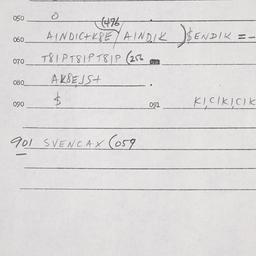 050 0
(476
060 AINDIC+K8E/AINDIK )$ENDIK =-
070 T8IPT8IPT8IP (25
080 AK8E,S+
090 $ 091 K|C|K|C|K
901 SVENCAX (059